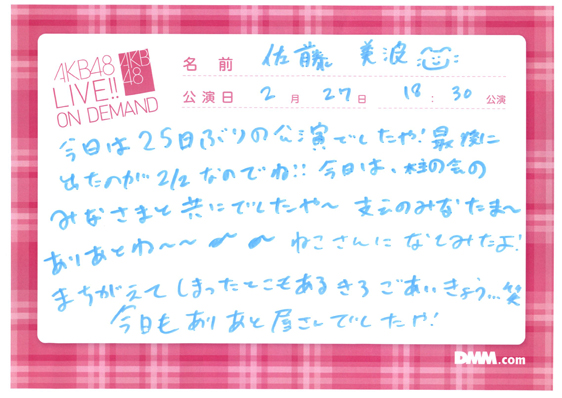 AKB48
LIVE!!
ON DEMAND
AKB
48
名前 佐藤 美波
公演日 2月27日 18:30公演
今日は25日ぶりの公演でしたや！最後に
出たのが2/2なのでね!! 今日は、柱の会の
みなさまと共にでしたや〜 支えのみなたま〜
ありあとわ〜〜 ねこさんになてみたよ！
まちがえてしまったとこもあるきろごあいきょう…笑
今日もありあと屋さんでしたや！
DMM.com